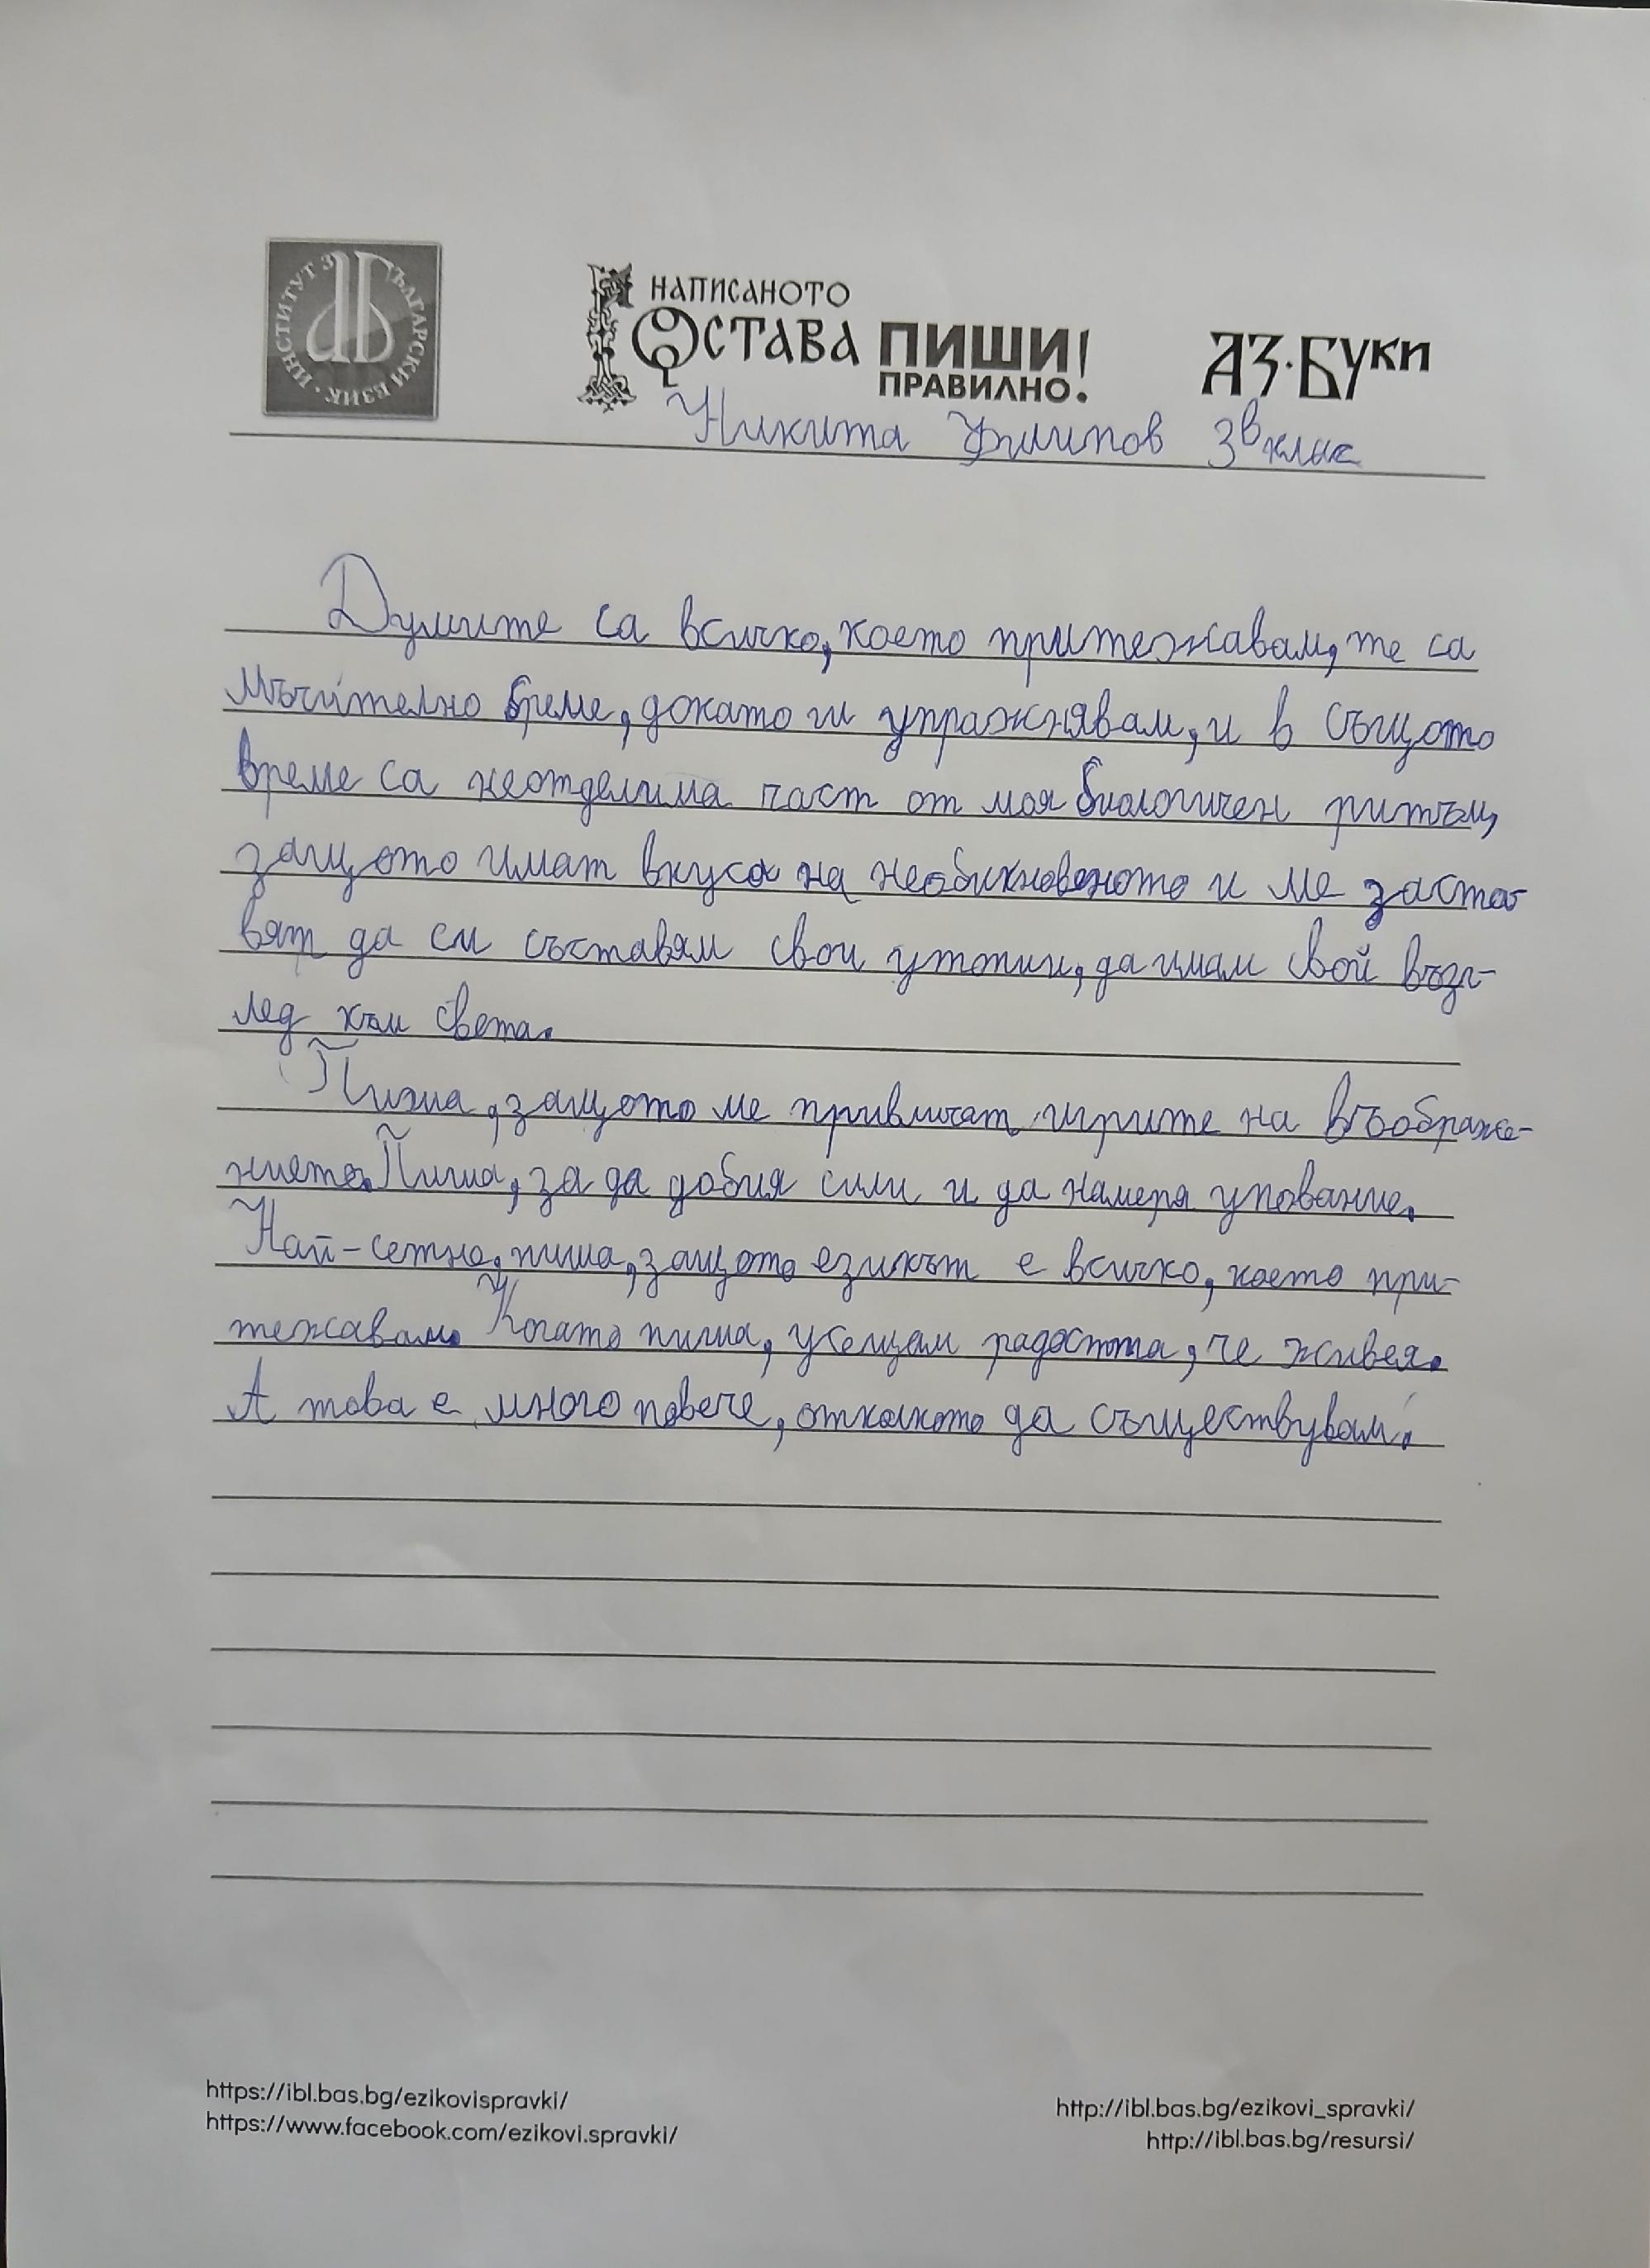 ИНСТИТУТ ЗА БЪЛГАРСКИ ЕЗИК
НАПИСАНОТО
ОСТАВА ПИШИ!
ПРАВИЛНО.
АЗ·БУКИ
Никита Филипов 3в клас
Думите са всичко, което притежавам, те са
мъчително бреме, докато ги упражнявам, и в същото
време са неотделима част от моя биологичен ритъм,
защото имат вкуса на необикновеното и ме заста-
вят да си съставям свои утопии, да имам свой възг-
лед към света.
Пиша, защото ме привличат игрите на въображе-
нието. Пиша, за да добия сили и да намеря упование.
Най-сетне, пиша, защото езикът е всичко, което при-
тежавам. Когато пиша, усещам радостта, че живея.
А това е много повече, отколкото да съществувам.
https://ibl.bas.bg/ezikovispravki/
https://www.facebook.com/ezikovi.spravki/
http://ibl.bas.bg/ezikovi_spravki/
http://ibl.bas.bg/resursi/